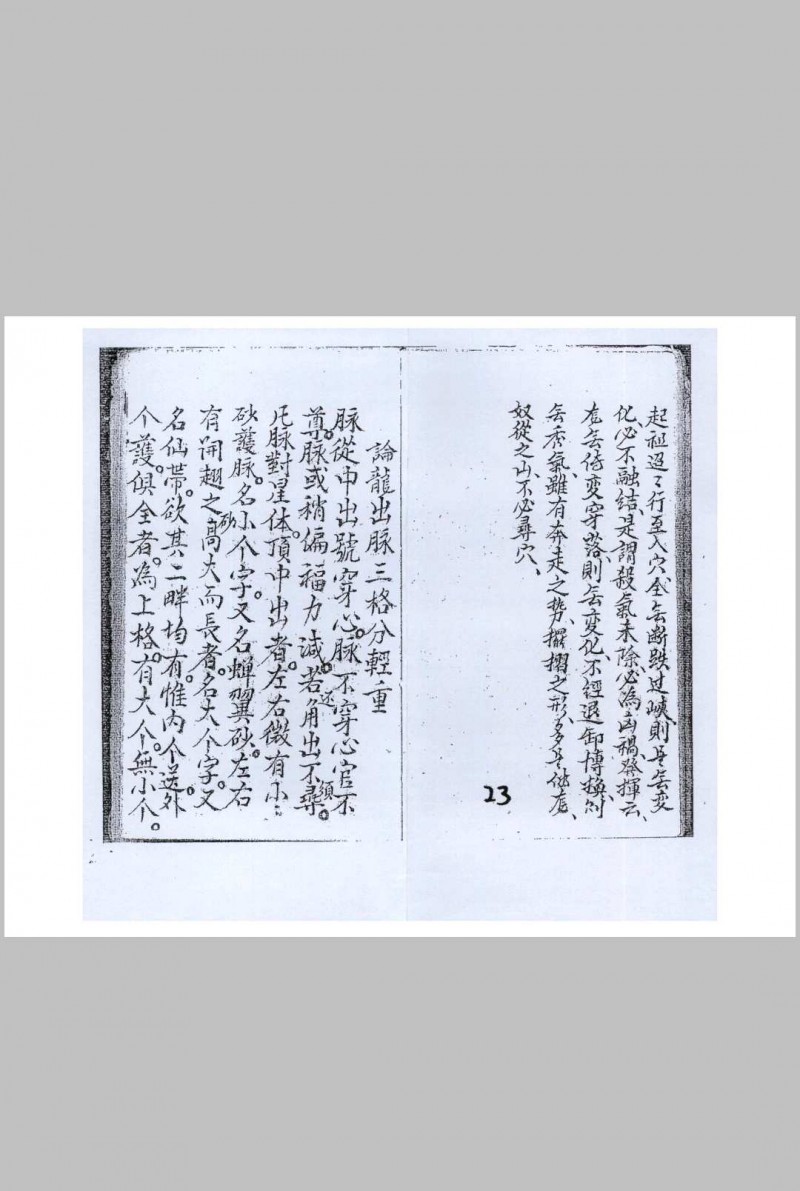 起祖迢々行至入穴全无断跌过峡則是无变
化必不融结是謂殺氣未除必為凶禍發揮云
龙无侍变穿落則无变化不經退卸博換則
无秀氣雖有奔走之势擺摺之形多是
奴從之山不必尋穴
23
論龍出脉三格分輕重
脉從中出號穿心脉不穿心官不
尊脉或稍偏福力減若角出不還須尋
凡脉對星体頂中出者左右微有小
砂護脉名小个字又名蟬翼砂左右
有開趐之砂高大而長者名大个字又
名仙帶欲其二畔均有惟內个送外
个護俱全者為上格有大个無小个